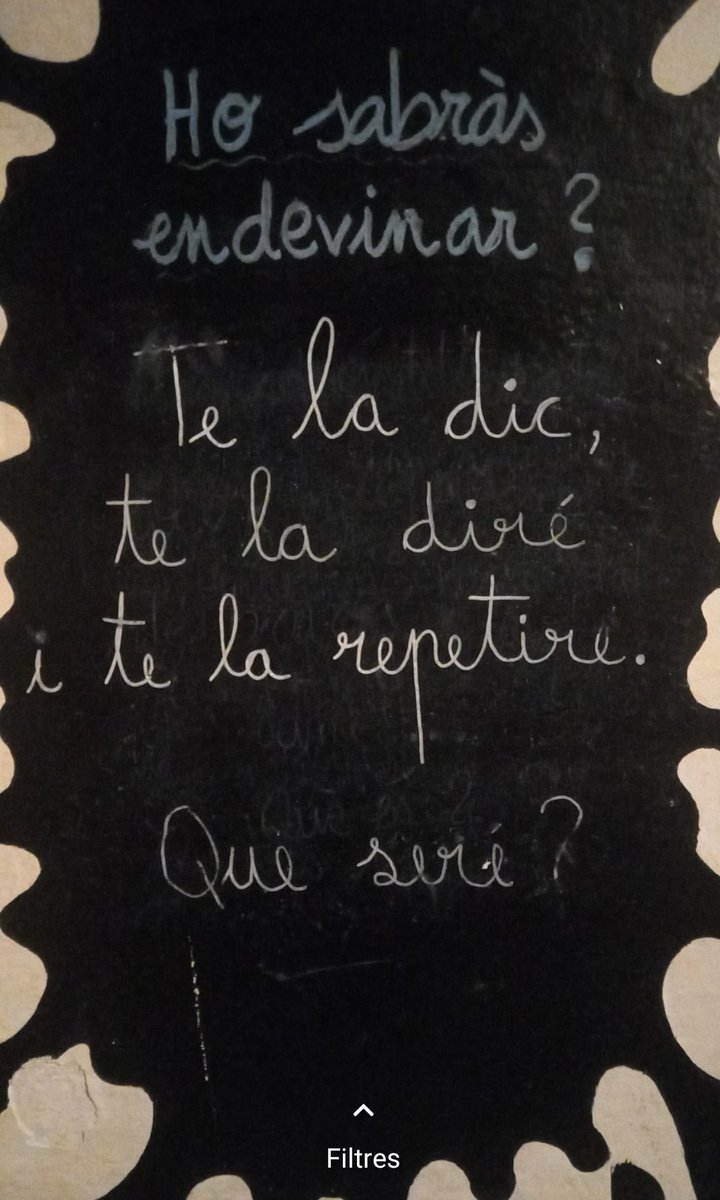 Ho sabràs
endevinar?
Te la dic,
te la diré
i te la repetiré.
Que seré?
Filtres